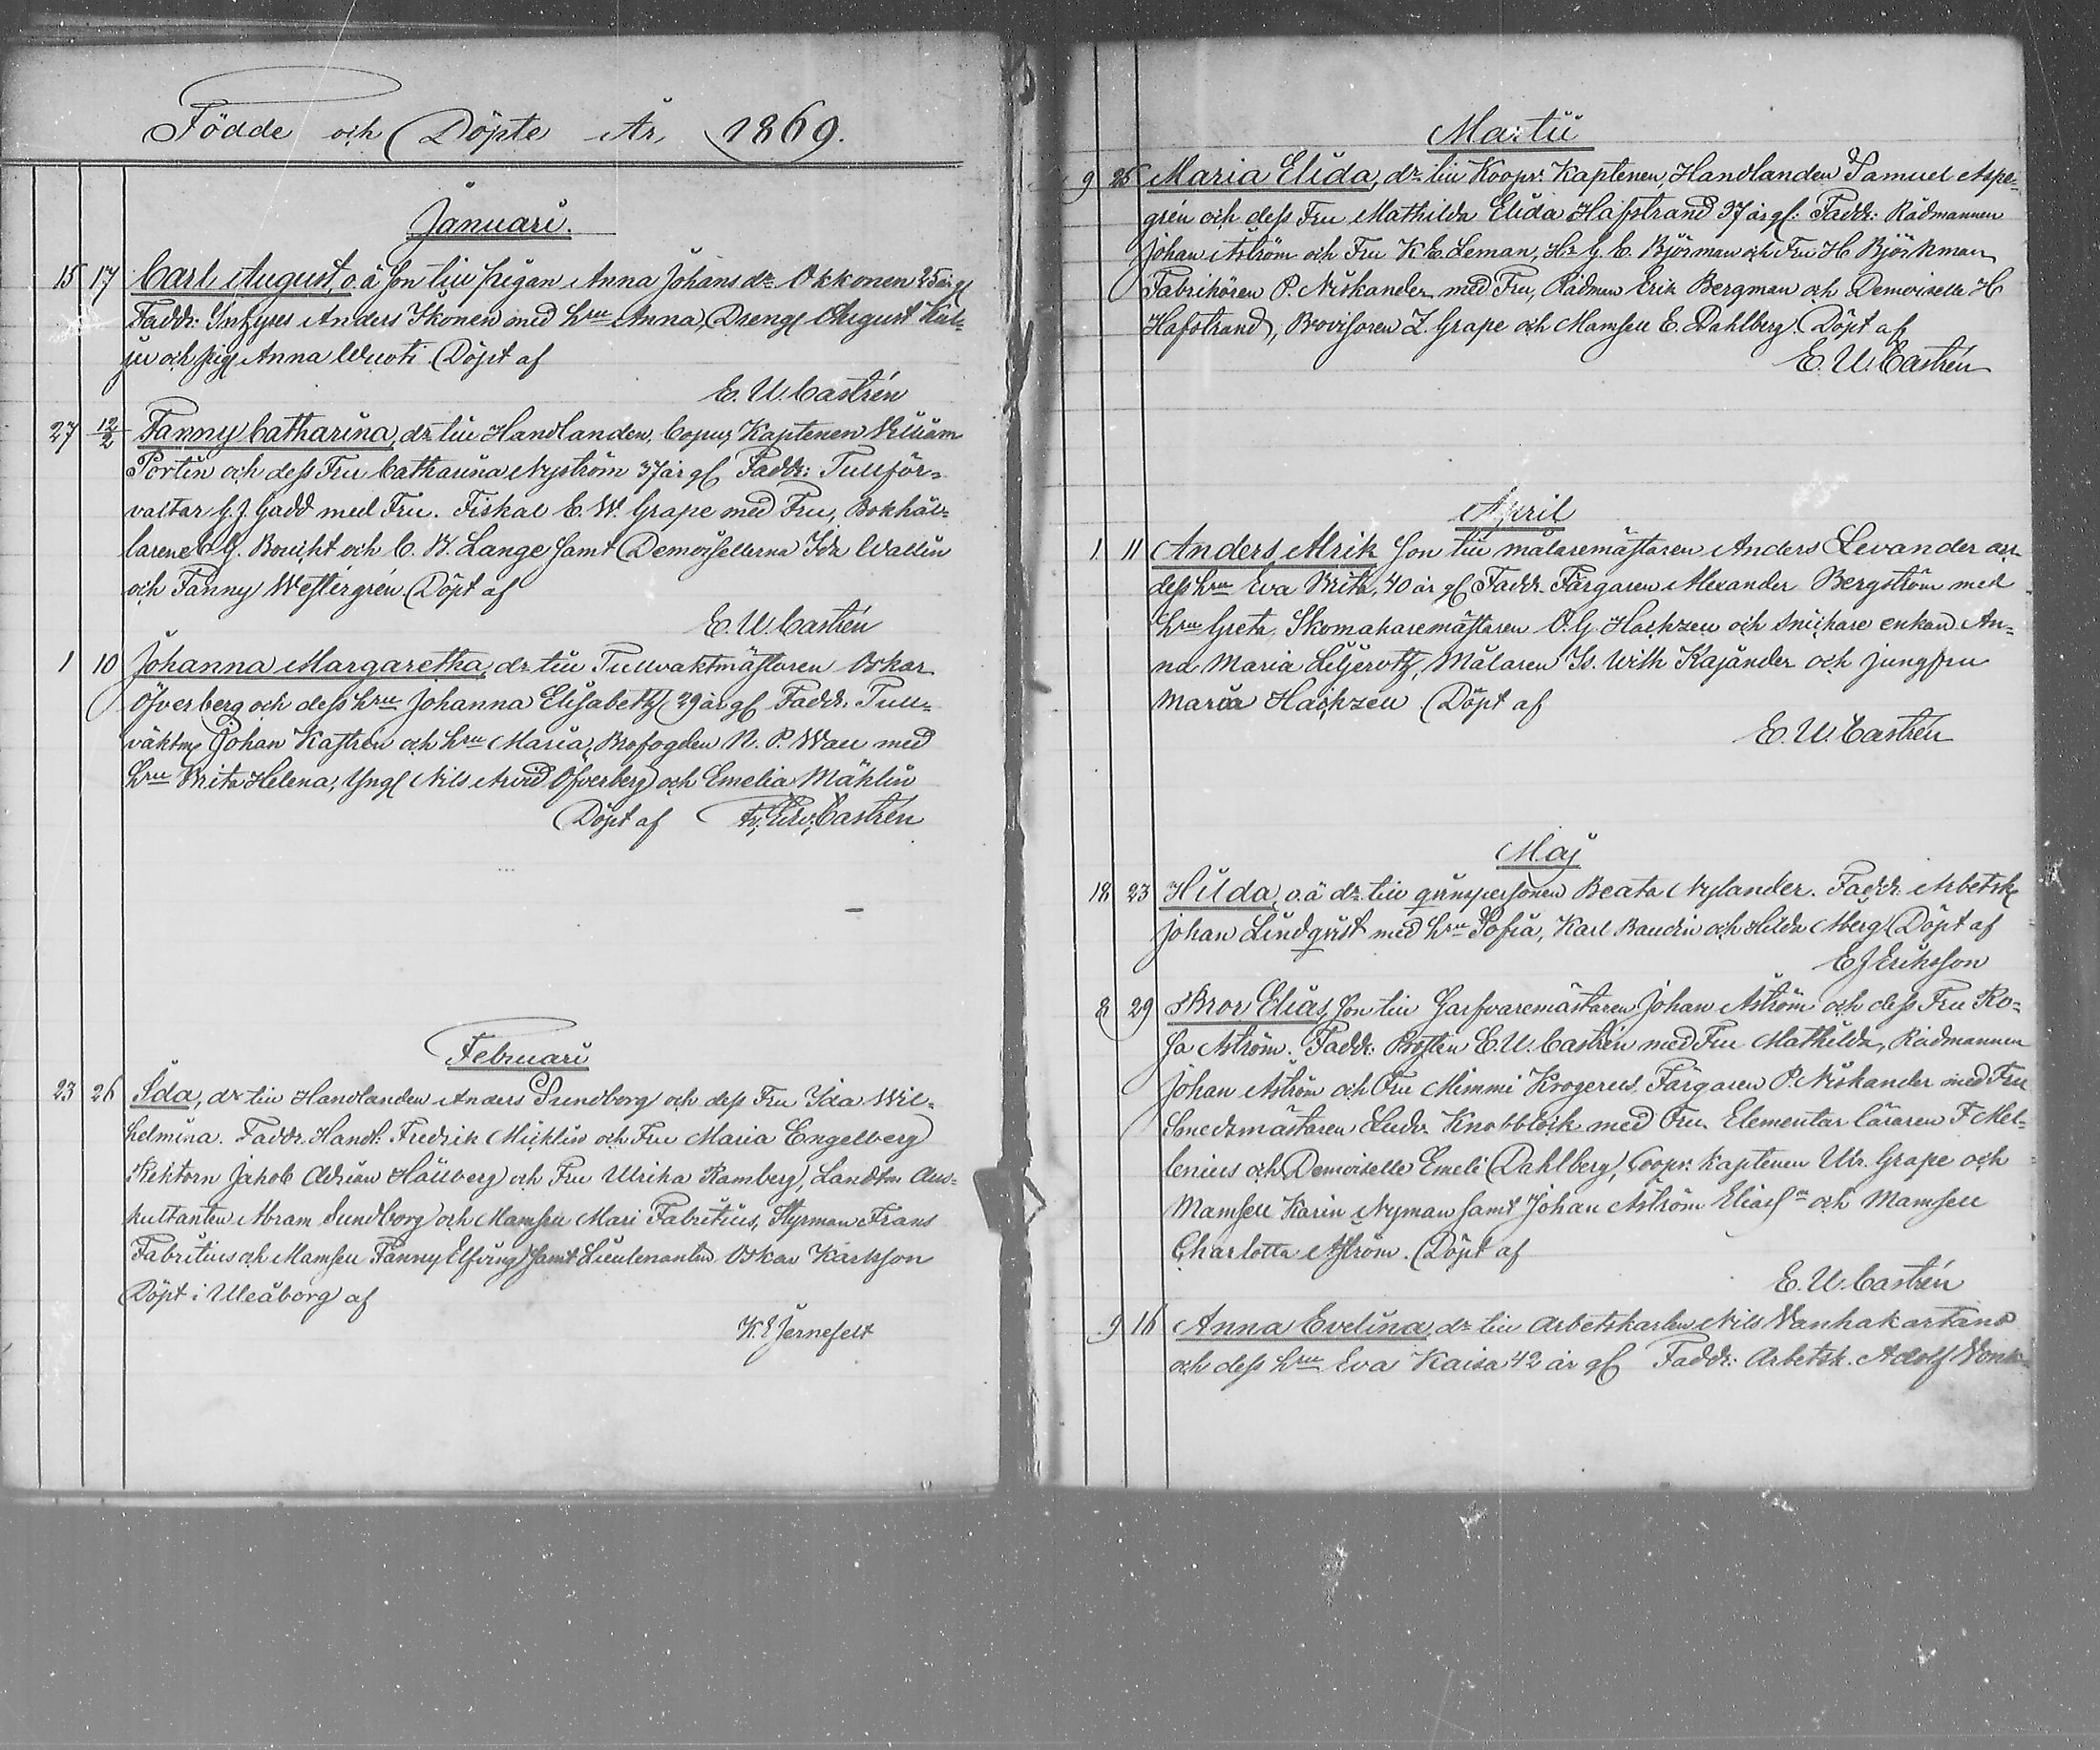 Födde och Döpte År 1869.
Januari.
15 17 Carl August, o.ä son till pigan Anna Johans dr Okkonen 25 år gl
Faddr: Inhyses Anders Ikonen med hru Anna, Drengl August
och pig Anna Döpt af
E. W. Castrén
27 12/2 Fanny Catharina, dr till Handlanden, Kaptenen William
Portin och dess Fru Catharina Nyström 37 år gl Faddr: Tullför-
valtar G. J. Gadd med Fru. Fiskal C. W. Grape med Fru, Bokhål-
larene G. och C. B. Lange samt Demoisellerna Ida Wallin
och Fanny Westergrén Döpt af
E. W. Castrén
1 10 Johanna Margaretha, dr till Tullvaktmästaren Oskar
Öfverberg och dess hru Johanna Elisabeth 29 år gl Faddr: Tull-
väktm Johan Kastren och hru Maria, Brofogden N. P. Wall med
hru Brita Helena, Yngl Nils Arvid Öfverberg och Emelia Mäklin
Döpt af Castrén
Februari
23 26 Ida, dr till Handlanden Anders Sundborg och dess Fru Ida Wil-
helmina. Faddr. Handl: Fredrik Micklin och Fru Maria Engelberg
Rektorn Jakob Adrian Hällberg och Fru Ulrika Ramberg, Landtm Aus-
kultanten Abram Sundborg och Mamsell Mari Fabritius, Styrman Frans
Fabritius och Mamsell Fanny Elfving samt Lieutenanten Oskar Karlsson
Döpt i Uleåborg af
K. E Jernefelt
Martii
9 25 Maria Elida, dr till Koopv: Kaptenen, Handlanden Samuel Aspe-
grén och dess Fru Mathilda Elida Hafstrand 37 år gl: Faddr: Rådmannen
Johan Aström och Fru K E. Leman, Hr G. C. Björman och Fru H Björkman
Fabrikören P. Niskander med Fru, Rådman Erik Bergman och Demoiselle H
Hafstrand, Provisoren Z. Grape och Mamsell E. Dahlberg Döpt af
E. W. Castrén
April
1 11 Anders Alrik son till målaremästaren Anders Levander och
dess hru Eva Brita, 40 år gl Faddr. Färgaren Alexander Bergström med
hru Greta, Skomakaremästaren O. G Hackzell och snickare enkan An-
na Maria Liljeroth, Målaren Is. With Kajander och jungfru
Maria Hackzell Döpt af
E. W. Castrén
Maj
18 23 Hilda, o.ä dr till qvinspersonen Beata Nylander. Faddr. Arbetsk
Johan Lindqvist med hru Sofia, Karl Baudin och Hilda Åberg Döpt af
E J Eriksson
8 29 Bror Elias, son till Garfvaremästaren Johan Aström och dess Fru Ro-
sa Aström. Faddr: Prosten E. W. Castrén med Fru Mathilda, Rådmannen
Johan Aström och Fru Mimmi Krogerus. Färgaren P. Niskander med Fru
Smedsmästaren Ludv. Knobblock med Fru. Elementar läraren F Mel-
lenius och Demoiselle Emeli Dahlberg, Coopv: kaptenen Ulr. Grape och
Mamsell Karin Nyman samt Johan Aström Eliass:n och Mamsell
Charlotta Aström. Döpt af
E. W. Castrén
9 16 Anna Evelina, dr till arbetskarlen Nils Vanhakartano
och dess hru Eva Kaisa 42 år gl Faddr: Arbetsk. Adolf